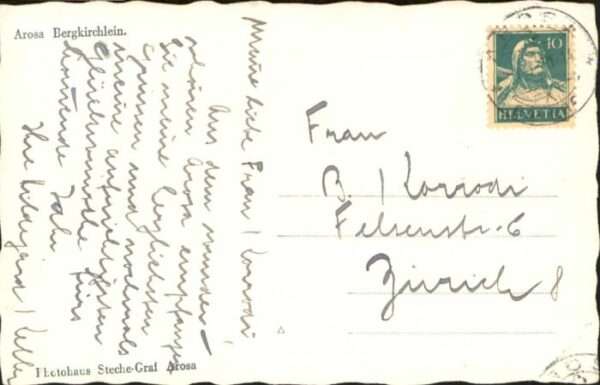 Arosa Bergkirchlein.
Meine liebe Frau Korrodi
Aus dem wunder-
schönen Arosa empfangen
Sie meine herzlichsten
und nochmals
meine aufrichtigsten
Glückwünsche fürs
kommende Jahr
Ihre Hildegard
Photohaus Steche-Graf Arosa
10
HELVETIA
Frau
B. Korrodi
Felsenstr. 6
Zürich 8